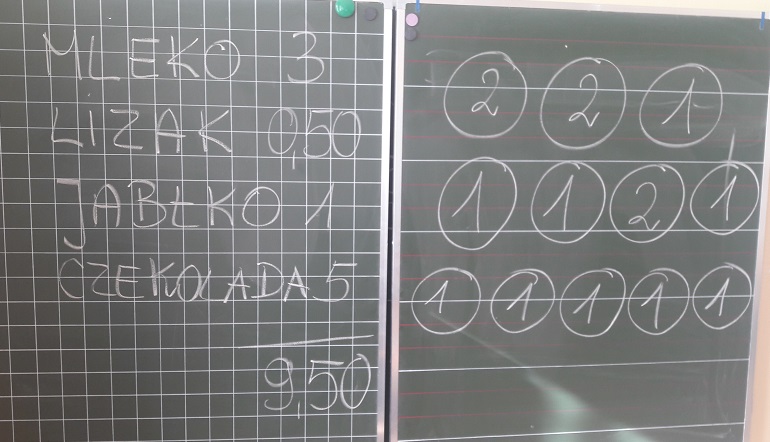 MLEKO 3
LIZAK 0,50
JABŁKO 1
CZEKOLADA 5
9,50
2 2 1
1 1 2 1
1 1 1 1 1